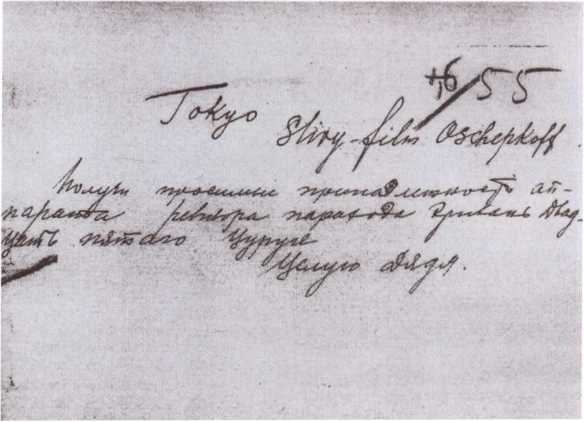 +,6 55
Tokyo
Slivy-film Oschepkoff.
Получи посылыне принадлежность ап-
парата ревизора парохода Эривань Двад-
цать пятаго Цуруге
Целую Дядя.